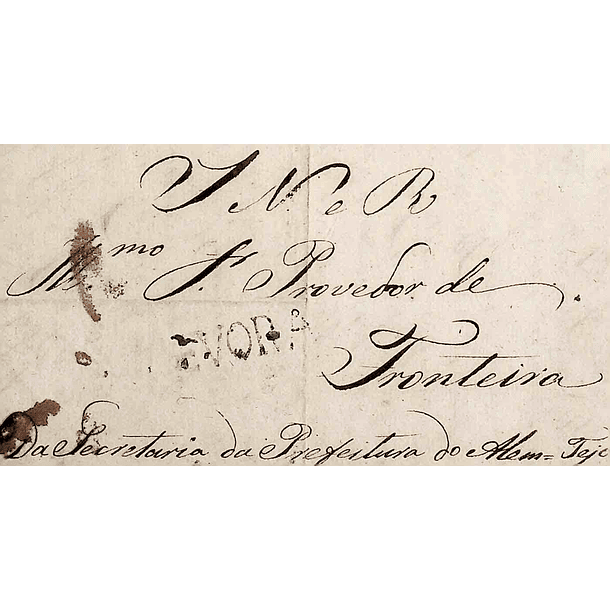 S N. e R
Illmo Sr. Provedor de
EVORA
Fronteira
Da Secretaria da Prefeitura do Alem=Tejo